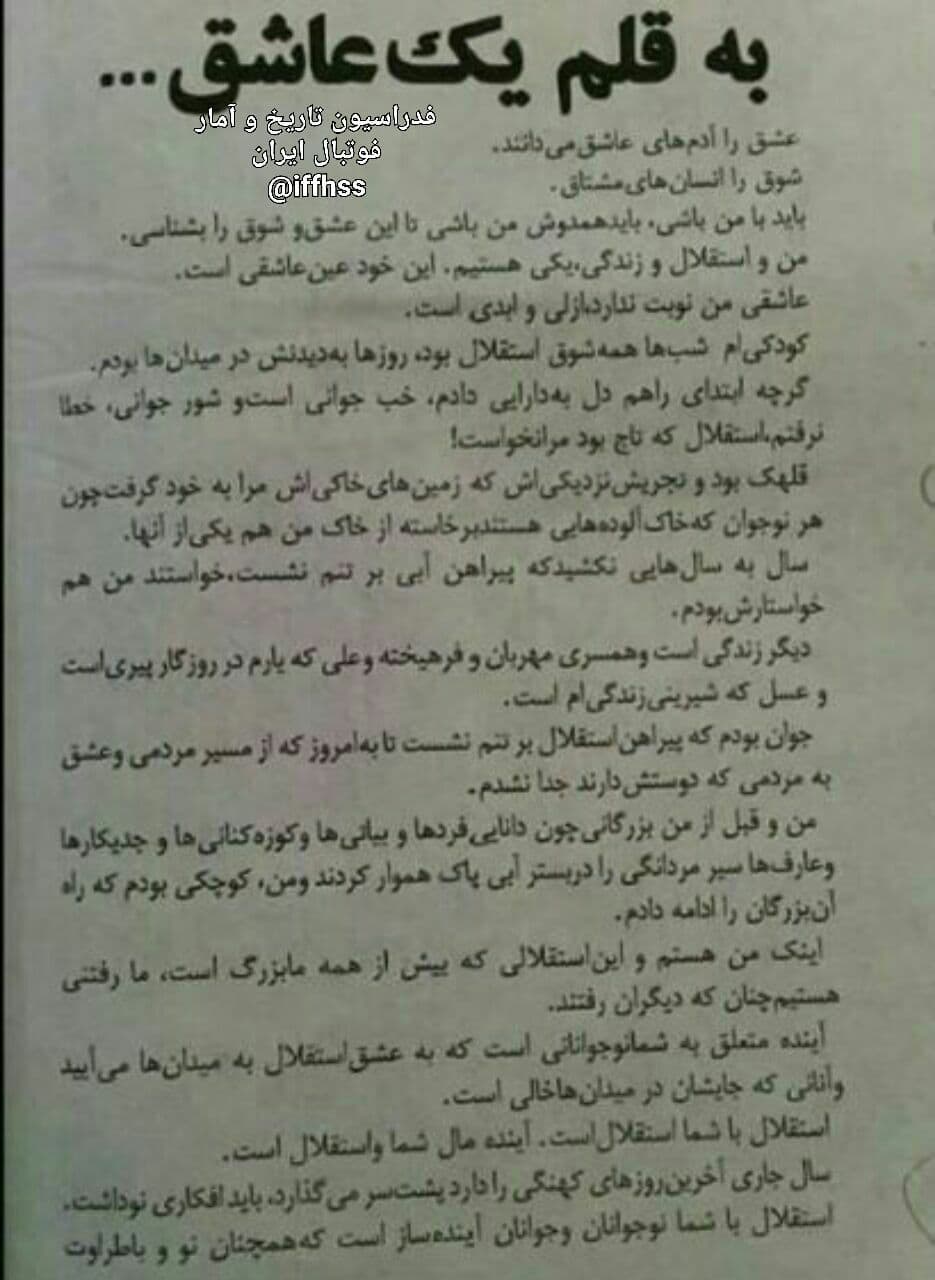 به قلم یک عاشق...
فدراسیون تاریخ و آمار
فوتبال ایران
@iffhss
عشق را آدم‌های عاشق می‌دانند.
شوق را انسان‌های مشتاق.
باید با من باشی، باید همدوش من باشی تا این عشق و شوق را بشناسی.
من و استقلال و زندگی، یکی هستیم. این خود عین عاشقی است.
عاشقی من نوبت ندارد، ازلی و ابدی است.
کودکی‌ام شب‌ها همه شوق استقلال بود، روزها به‌دیدنش در میدان‌ها بودم.
گرچه ابتدای راهم دل به‌دارایی دادم، خب جوانی است و شور جوانی، خطا
نرفتم، استقلال که تاج بود مرا نخواست!
قلهک بود و تجریش نزدیکی‌اش که زمین‌های خاکی‌اش مرا به خود گرفت چون
هر نوجوان که خاک‌آلوده‌هایی هستند برخاسته از خاک من هم یکی از آنها.
سال به سال‌هایی نکشید که پیراهن آبی بر تنم نشست، خواستند من هم
خواستارش بودم.
دیگر زندگی است و همسری مهربان و فرهیخته و علی که یارم در روزگار پیری است
و عسل که شیرینی زندگی‌ام است.
جوان بودم که پیراهن استقلال بر تنم نشست تا به‌امروز که از مسیر مردمی و عشق
به مردمی که دوستش دارند جدا نشدم.
من و قبل از من بزرگانی چون دانایی‌فردها و بیاتی‌ها و کوزه‌کنانی‌ها و جدیکارها
و عارف‌ها سیر مردانگی را در بستر آبی پاک هموار کردند و من، کوچکی بودم که راه
آن بزرگان را ادامه دادم.
اینک من هستم و این استقلالی که بیش از همه ما بزرگ است، ما رفتنی
هستیم چنان که دیگران رفتند.
آینده متعلق به شما نوجوانانی است که به عشق استقلال به میدان‌ها می‌آیید
و آنانی که جایشان در میدان‌ها خالی است.
استقلال با شما استقلال است. آینده مال شما و استقلال است.
سال جاری آخرین روزهای کهنگی را دارد پشت‌سر می‌گذارد، باید افکاری نو داشت.
استقلال با شما نوجوانان و جوانان آینده‌ساز است که همچنان نو و باطراوت